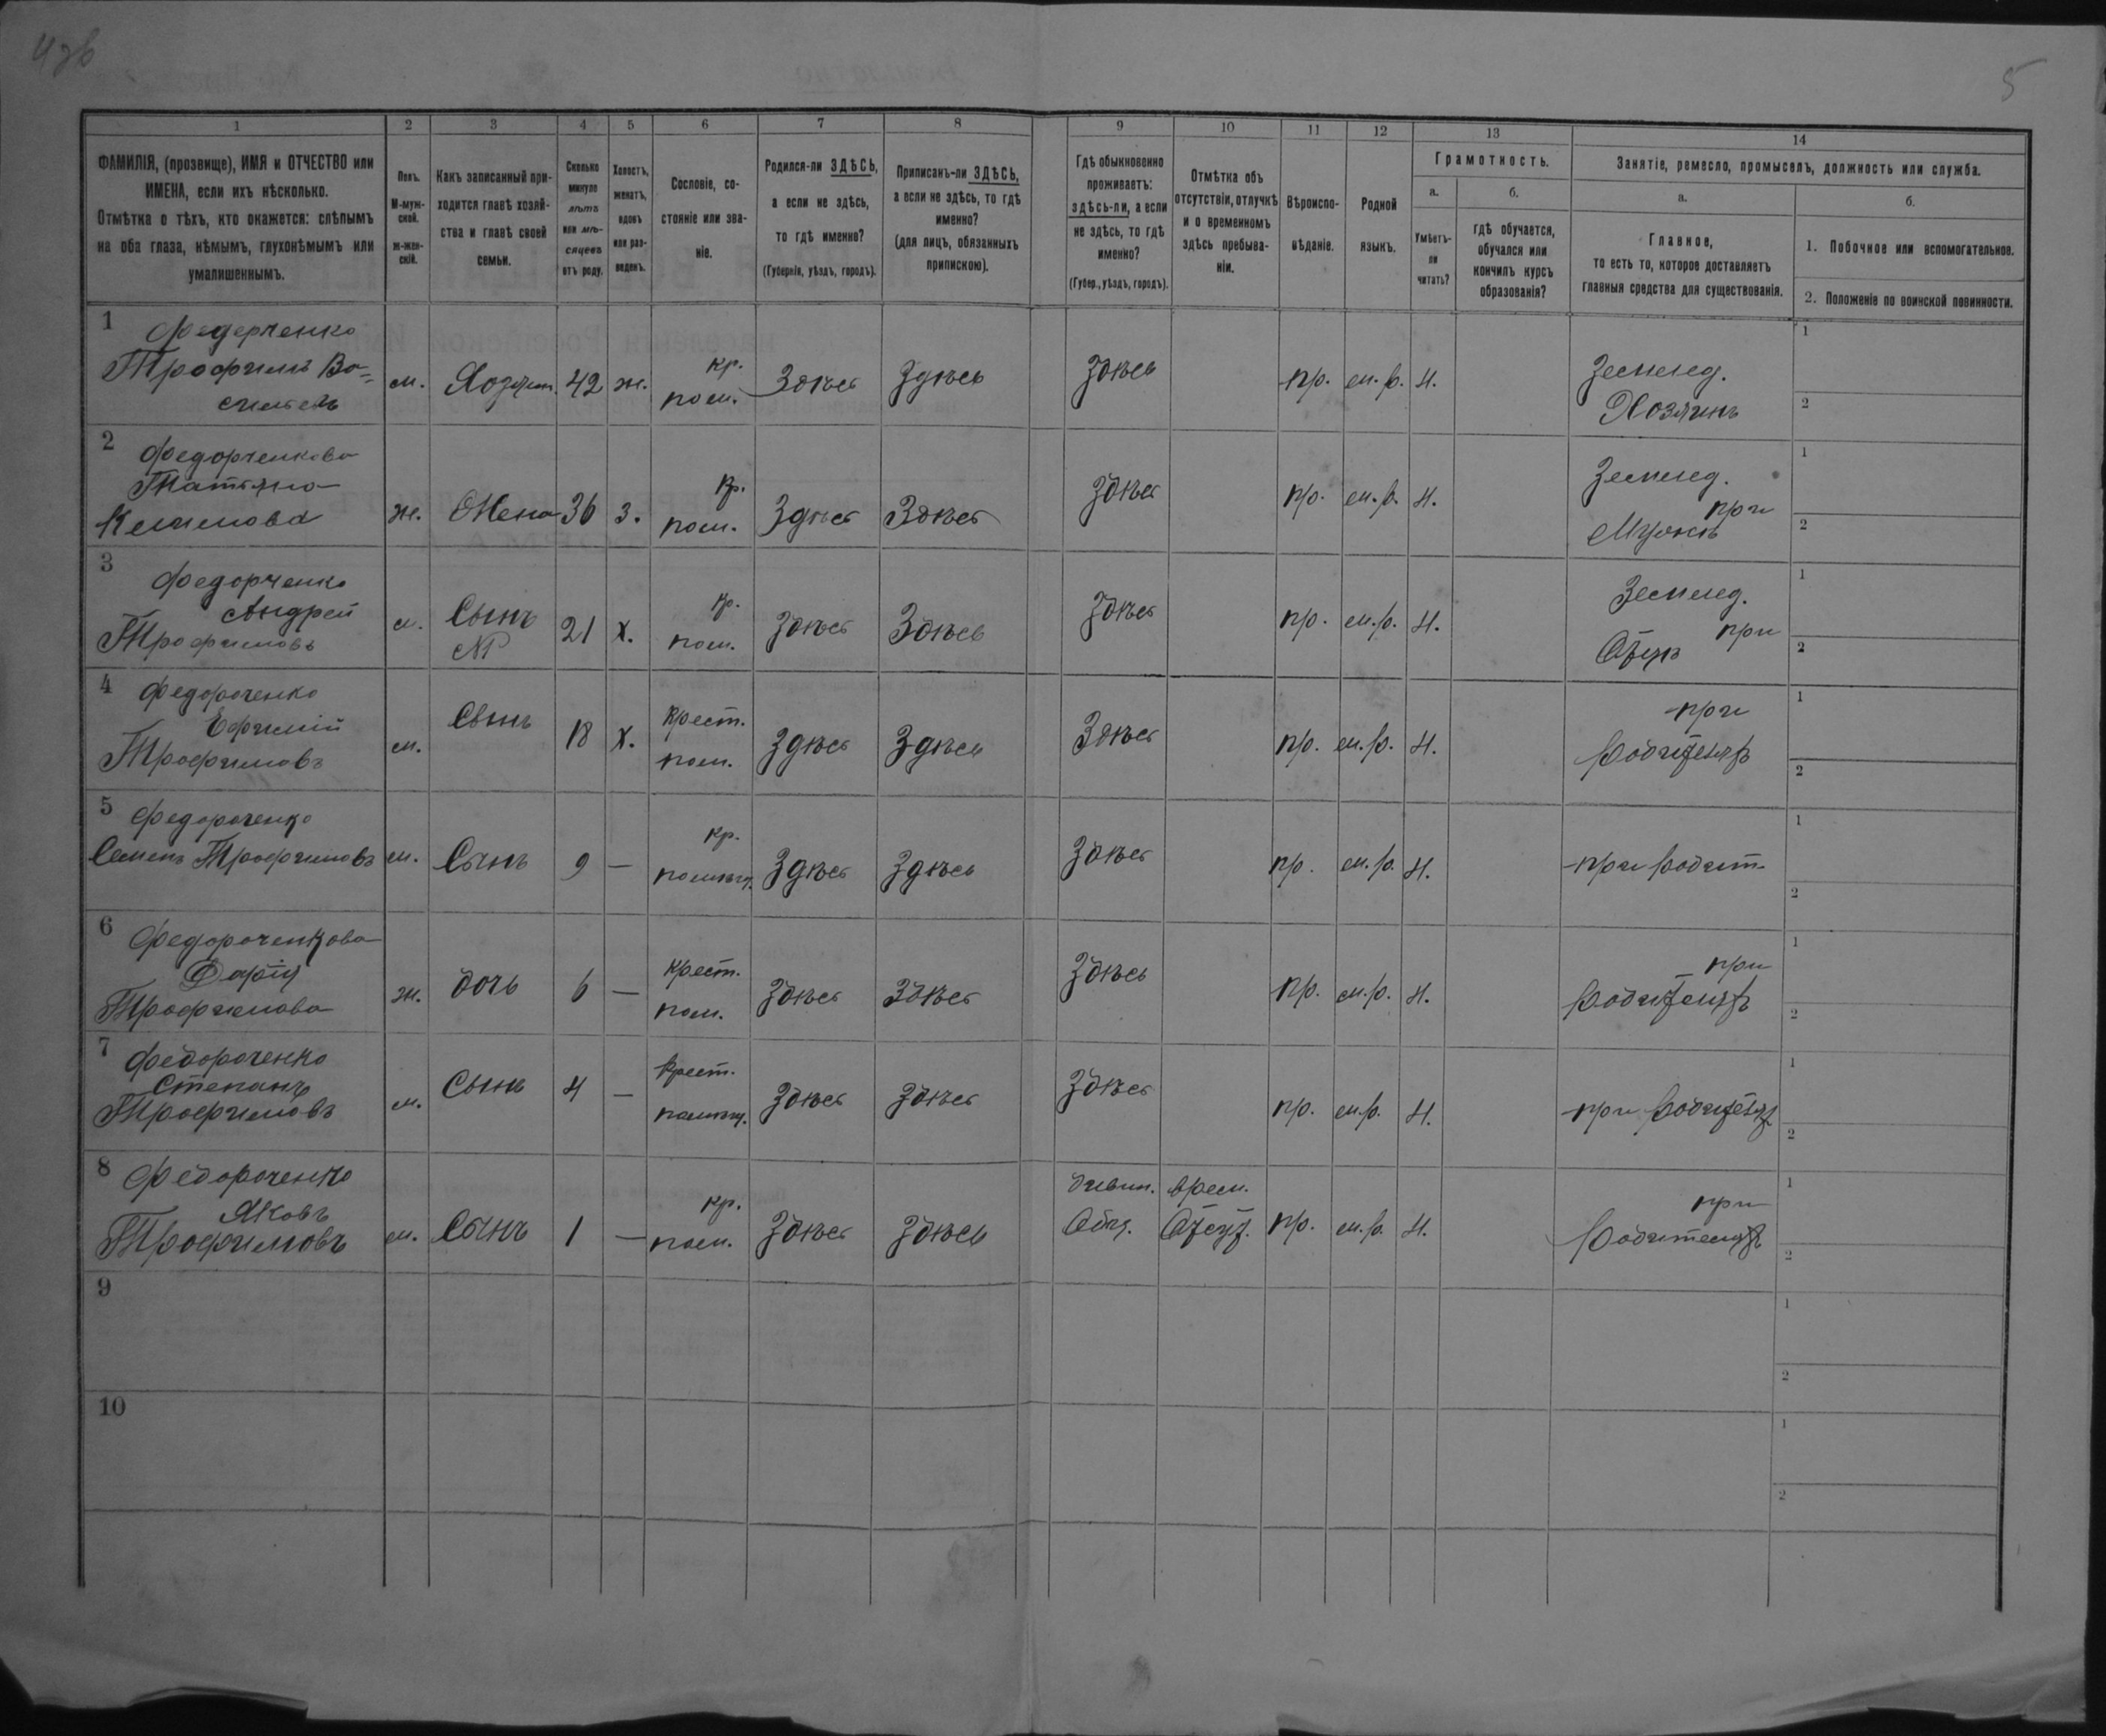 5
1 2 3 4 5 6 7 8 9 10 11 12 13 14
ФАМИЛІЯ, (прозвище), ИМЯ и ОТЧЕСТВО или
ИМЕНА, если ихъ нѣсколько.
Отмѣтка о тѣхъ, кто окажется: слѣпымъ
на оба глаза, нѣмымъ, глухонѣмымъ или
умалишеннымъ.
Полъ.
М-муж-
ской.
ж-жен-
скій.
Какъ записанный при-
ходится главѣ хозяй-
ства и главѣ своей
семьи.
Сколько
минуло
лѣтъ
или мѣ-
сяцевъ
отъ роду.
Холостъ,
женатъ,
вдовъ
или раз-
веденъ.
Сословіе, со-
стояніе или зва-
ніе.
Родился-ли ЗДѢСЬ,
а если не здѣсь,
то гдѣ именно?
(Губернія, уѣздъ, городъ).
Приписанъ-ли ЗДѢСЬ,
а если не здѣсь, то гдѣ
именно?
(для лицъ, обязанныхъ
припискою).
Гдѣ обыкновенно
проживаетъ:
здѣсь-ли, а если
не здѣсь, то гдѣ
именно?
(Губер., уѣздъ, городъ).
Отмѣтка объ
отсутствіи, отлучкѣ
и о временномъ
здѣсь пребыва-
ніи.
Вѣроиспо-
вѣданіе.
Родной
языкъ.
Грамотность.
а.
Умѣетъ-
ли
читать?
б.
гдѣ обучается,
обучался или
кончилъ курсъ
образованія?
Занятіе, ремесло, промыселъ, должность или служба.
а.
Главное,
то есть то, которое доставляетъ
главныя средства для существованія.
б.
1. Побочное или вспомогательное.
2. Положеніе по воинской повинности.
1 Федерченко
Трофимъ Ва-
силевъ
м. Хозяин. 42 ж. кр.
пом. Здѣсь Здѣсь Здѣсь пр. м.р. Н. Землед.
Хозяинъ 1
2
2 Федорченкова
Татьяна
Климова
ж. Жена 36 з. кр.
пом. Здѣсь Здѣсь Здѣсь пр. м.р. Н. Землед.
при
Мужѣ 1
2
3 Федорченко
Андрей
Трофимовъ
м. Сынъ
21 х. кр.
пом. Здѣсь Здѣсь Здѣсь пр. м.р. Н. Землед.
при
Отцѣ 1
2
4 Федорченко
Ефимій
Трофимовъ
м. Сынъ 18 х. Крест.
пом. Здѣсь Здѣсь Здѣсь пр. м.р. Н. при
Родителяхъ 1
2
5 Федорченко
Семенъ Трофимовъ
м. Сынъ 9 — кр.
помѣщ. Здѣсь Здѣсь Здѣсь пр. м.р. Н. при Родит. 1
2
6 Федорченкова
Дарія
Трофимова
ж. дочь 6 — крест.
пом. Здѣсь Здѣсь Здѣсь пр. м.р. Н. при
Родителяхъ 1
2
7 Федорченко
Степанъ
Трофимовъ
м. Сынъ 4 — Крест.
помѣщ. Здѣсь Здѣсь Здѣсь пр. м.р. Н. при Родителях 1
2
8 Федорченко
Яковъ
Трофимовъ
м. Сынъ 1 — кр.
пом. Здѣсь Здѣсь врем.
Отсут. пр. м.р. Н. при
Родителяхъ 1
2
9 1
2
10 1
2